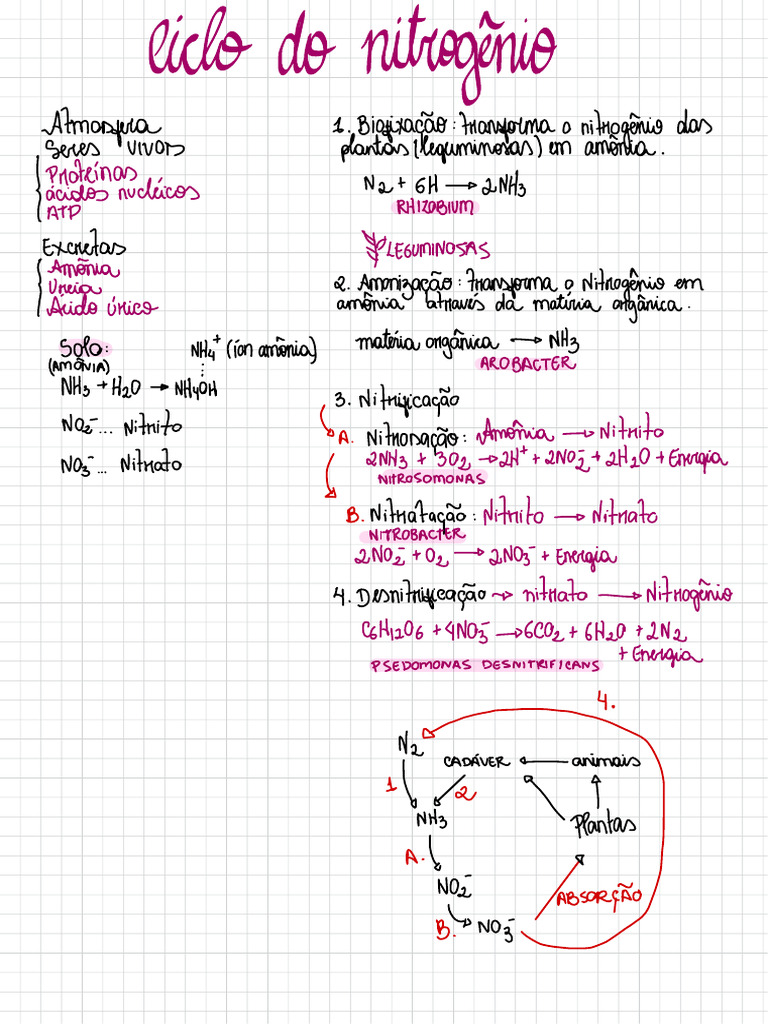 Ciclo do nitrogênio
Atmosfera
Seres vivos
Proteínas
ácidos nucléicos
ATP
Excretas
Amônia
Ureia
Ácido úrico
Solo:
(AMÔNIA)
NH4+ (íon amônia)
NH3 + H2O → NH4OH
NO2-... Nitrito
NO3-... Nitrato
1. Biofixação: transforma o nitrogênio das
plantas (leguminosas) em amônia.
N2 + 6H → 2NH3
RHIZOBIUM
LEGUMINOSAS
2. Amonização: transforma o Nitrogênio em
amônia através da matéria orgânica.
matéria orgânica → NH3
AROBACTER
3. Nitrificação
A. Nitrosação: Amônia → Nitrito
2NH3 + 3O2 → 2H+ + 2NO2- + 2H2O + Energia
NITROSOMONAS
B. Nitratação: Nitrito → Nitrato
NITROBACTER
2NO2- + O2 → 2NO3- + Energia
4. Desnitrificação → nitrato → Nitrogênio
C6H12O6 + 4NO3- → 6CO2 + 6H2O + 2N2
+ Energia
PSEDOMONAS DESNITRIFICANS
4.
N2
CADÁVER ← animais
1
2
NH3
Plantas
A.
NO2-
ABSORÇÃO
B.
NO3-